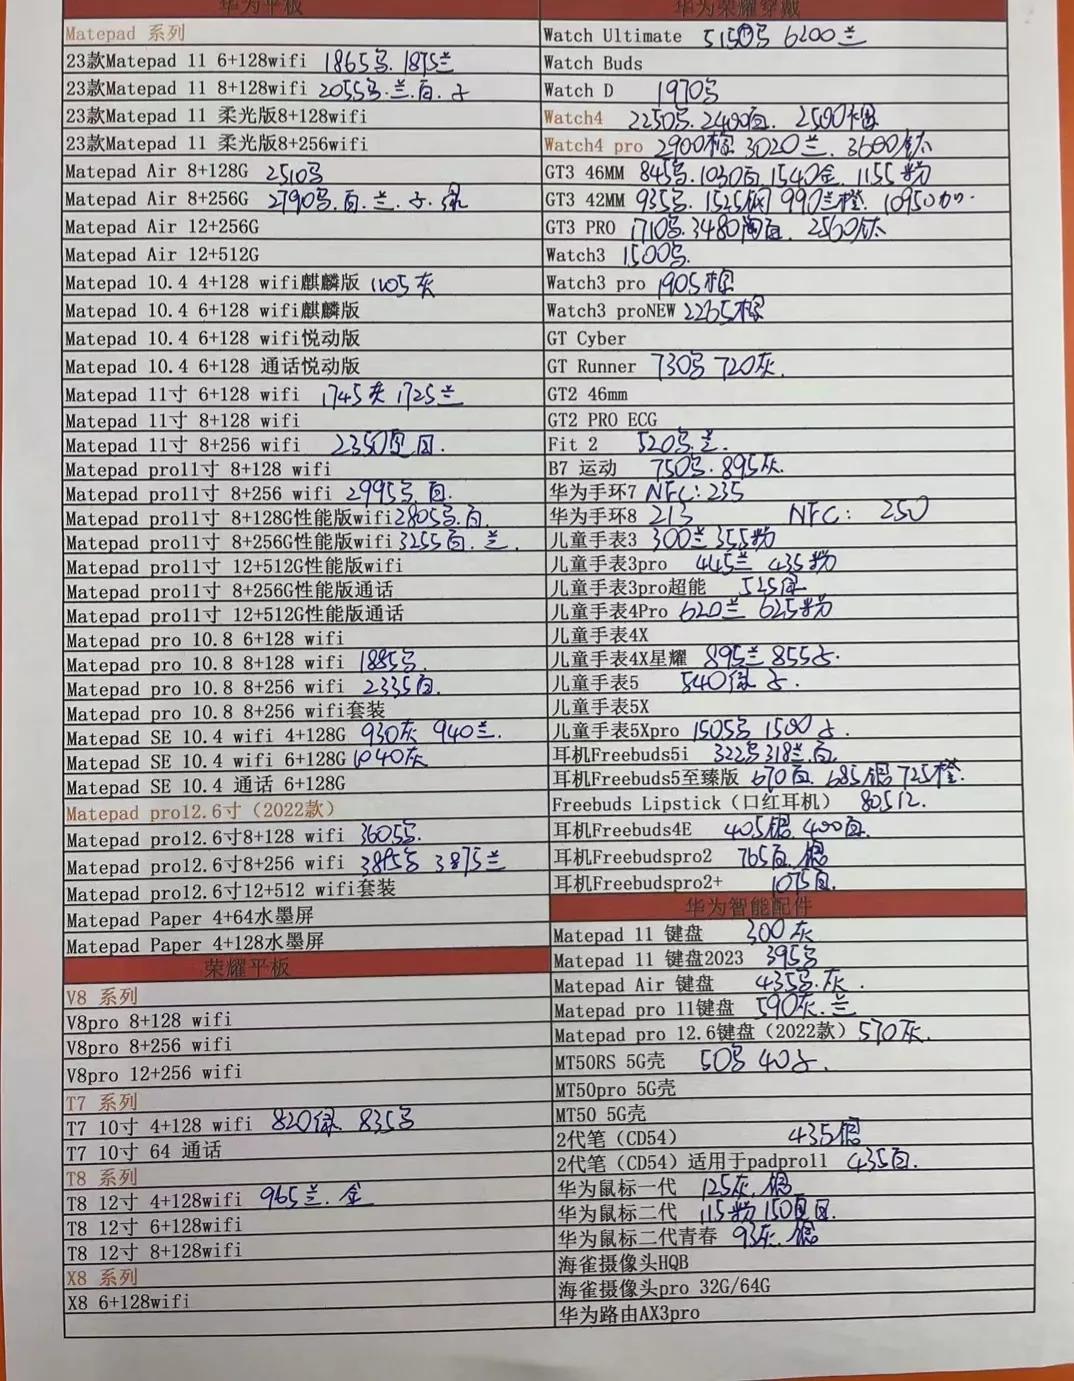 华为平板
Matepad 系列
23款Matepad 11 6+128wifi 1865号. 1875兰
23款Matepad 11 8+128wifi 2055号.兰.白.子
23款Matepad 11 柔光版8+128wifi
23款Matepad 11 柔光版8+256wifi
Matepad Air 8+128G 2510号
Matepad Air 8+256G 2790号.白.兰.子.绿
Matepad Air 12+256G
Matepad Air 12+512G
Matepad 10.4 4+128 wifi麒麟版 1105灰
Matepad 10.4 6+128 wifi麒麟版
Matepad 10.4 6+128 wifi悦动版
Matepad 10.4 6+128 通话悦动版
Matepad 11寸 6+128 wifi 1745灰 1725兰
Matepad 11寸 8+128 wifi
Matepad 11寸 8+256 wifi 2350
Matepad pro11寸 8+128 wifi
Matepad pro11寸 8+256 wifi 2995号.白.
Matepad pro11寸 8+128G性能版wifi 2805号.白.
Matepad pro11寸 8+256G性能版wifi 3255白.兰.
Matepad pro11寸 12+512G性能版wifi
Matepad pro11寸 8+256G性能版通话
Matepad pro11寸 12+512G性能版通话
Matepad pro 10.8 6+128 wifi
Matepad pro 10.8 8+128 wifi 1885号.
Matepad pro 10.8 8+256 wifi 2335白.
Matepad pro 10.8 8+256 wifi套装
Matepad SE 10.4 wifi 4+128G 930灰 940兰.
Matepad SE 10.4 wifi 6+128G 1040灰
Matepad SE 10.4 通话 6+128G
Matepad pro12.6寸（2022款）
Matepad pro12.6寸8+128 wifi 3605号.
Matepad pro12.6寸8+256 wifi 3895号 3875兰
Matepad pro12.6寸12+512 wifi套装
Matepad Paper 4+64水墨屏
Matepad Paper 4+128水墨屏
荣耀平板
V8 系列
V8pro 8+128 wifi
V8pro 8+256 wifi
V8pro 12+256 wifi
T7 系列
T7 10寸 4+128 wifi 820绿 835号
T7 10寸 64 通话
T8 系列
T8 12寸 4+128wifi 965兰.金
T8 12寸 6+128wifi
T8 12寸 8+128wifi
X8 系列
X8 6+128wifi
华为荣耀穿戴
Watch Ultimate 5150号 6200兰
Watch Buds
Watch D 1970号
Watch4 2250号.2400白. 2500棕
Watch4 pro 2900棕 3020兰. 3600钛
GT3 46MM 845号.1030白 1540金. 1155粉
GT3 42MM 935号. 1525钢 990兰橙.
GT3 PRO 1710号.3480陶白. 2560钛
Watch3 1500号.
Watch3 pro 1905棕
Watch3 proNEW 2265棕
GT Cyber
GT Runner 730号 720灰.
GT2 46mm
GT2 PRO ECG
Fit 2 520号.兰.
B7 运动 750号.895灰.
华为手环7 NFC:235
华为手环8 213 NFC: 250
儿童手表3 300兰 355粉
儿童手表3pro 445兰 435粉
儿童手表3pro超能 525绿
儿童手表4Pro 620兰 625粉
儿童手表4X
儿童手表4X星耀 895兰 855子.
儿童手表5 840绿 子.
儿童手表5X
儿童手表5Xpro 1505号 1500子.
耳机Freebuds5i 322号 318兰.白.
耳机Freebuds5至臻版 670白. 685银 725橙.
Freebuds Lipstick（口红耳机） 805红.
耳机Freebuds4E 405银. 400白.
耳机Freebudspro2 765白.银
耳机Freebudspro2+ 1075白.
华为智能配件
Matepad 11 键盘 300灰
Matepad 11 键盘2023 395号
Matepad Air 键盘 435号.灰.
Matepad pro 11键盘 590灰.兰
Matepad pro 12.6键盘（2022款）570灰.
MT50RS 5G壳 50号 40子.
MT50pro 5G壳
MT50 5G壳
2代笔（CD54） 435银
2代笔（CD54）适用于padpro11 435白.
华为鼠标一代 125灰.银
华为鼠标二代 115粉 150
华为鼠标二代青春 93灰.银
海雀摄像头HQB
海雀摄像头pro 32G/64G
华为路由AX3pro